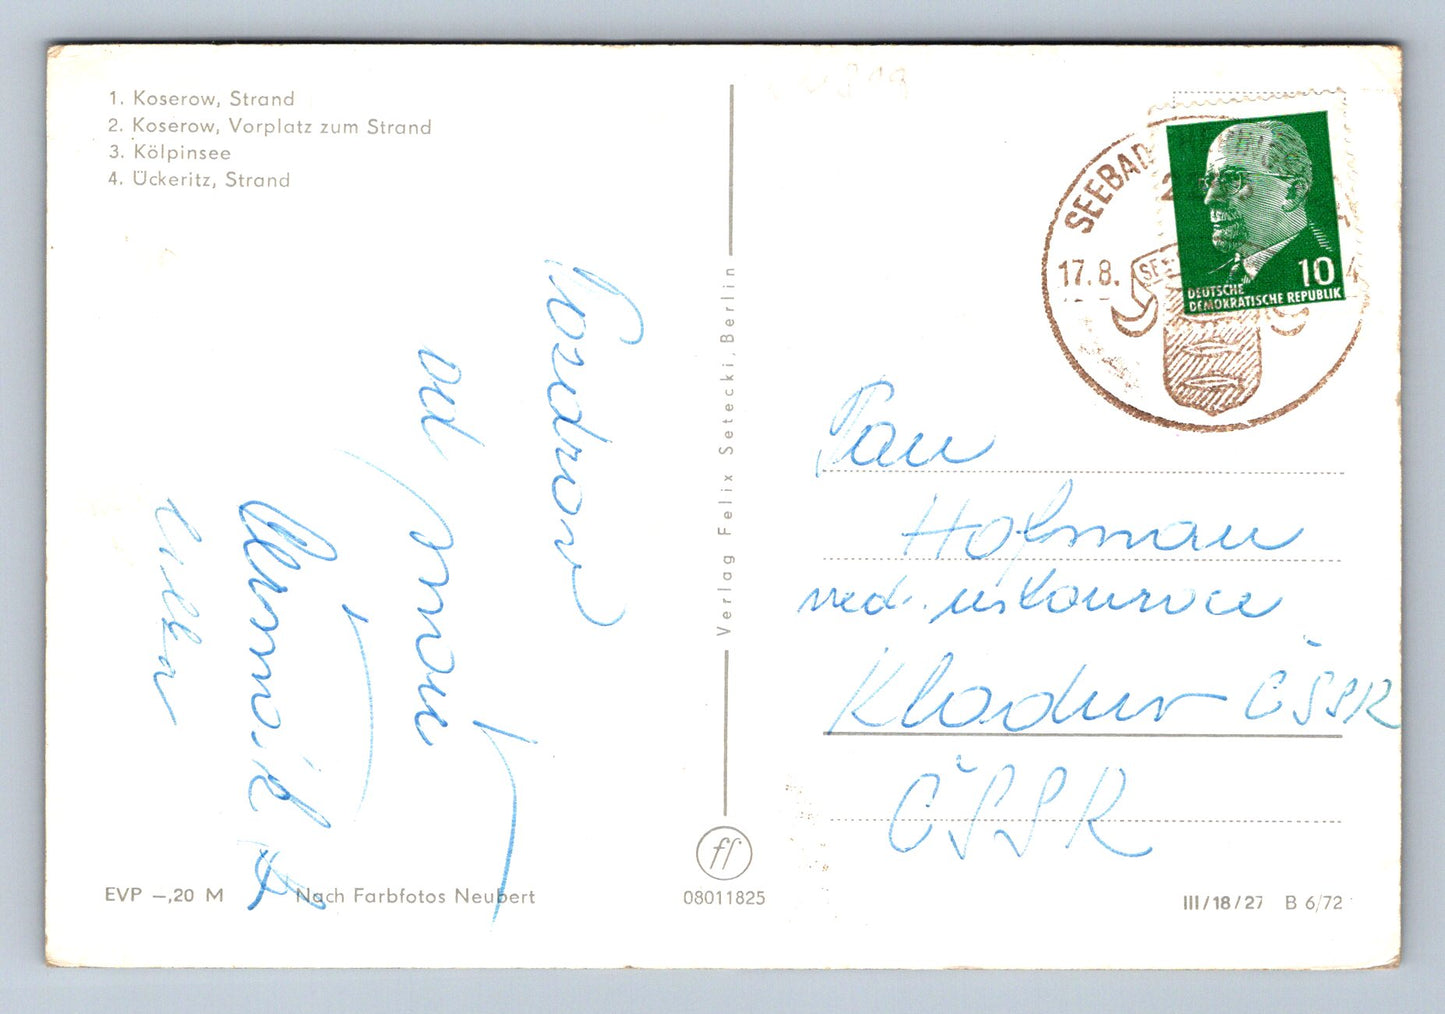 1. Koserow, Strand
2. Koserow, Vorplatz zum Strand
3. Kölpinsee
4. Ückeritz, Strand
Pozdrav
od moře
EVP –,20 M
Nach Farbfotos Neubert
Verlag Felix Setecki, Berlin
ff
08011825
SEEBAD
17.8.
10
DEUTSCHE
DEMOKRATISCHE REPUBLIK
Pan
Hofman
ved. restaurace
Kladno ČSSR
ČSSR
III/18/27 B 6/72